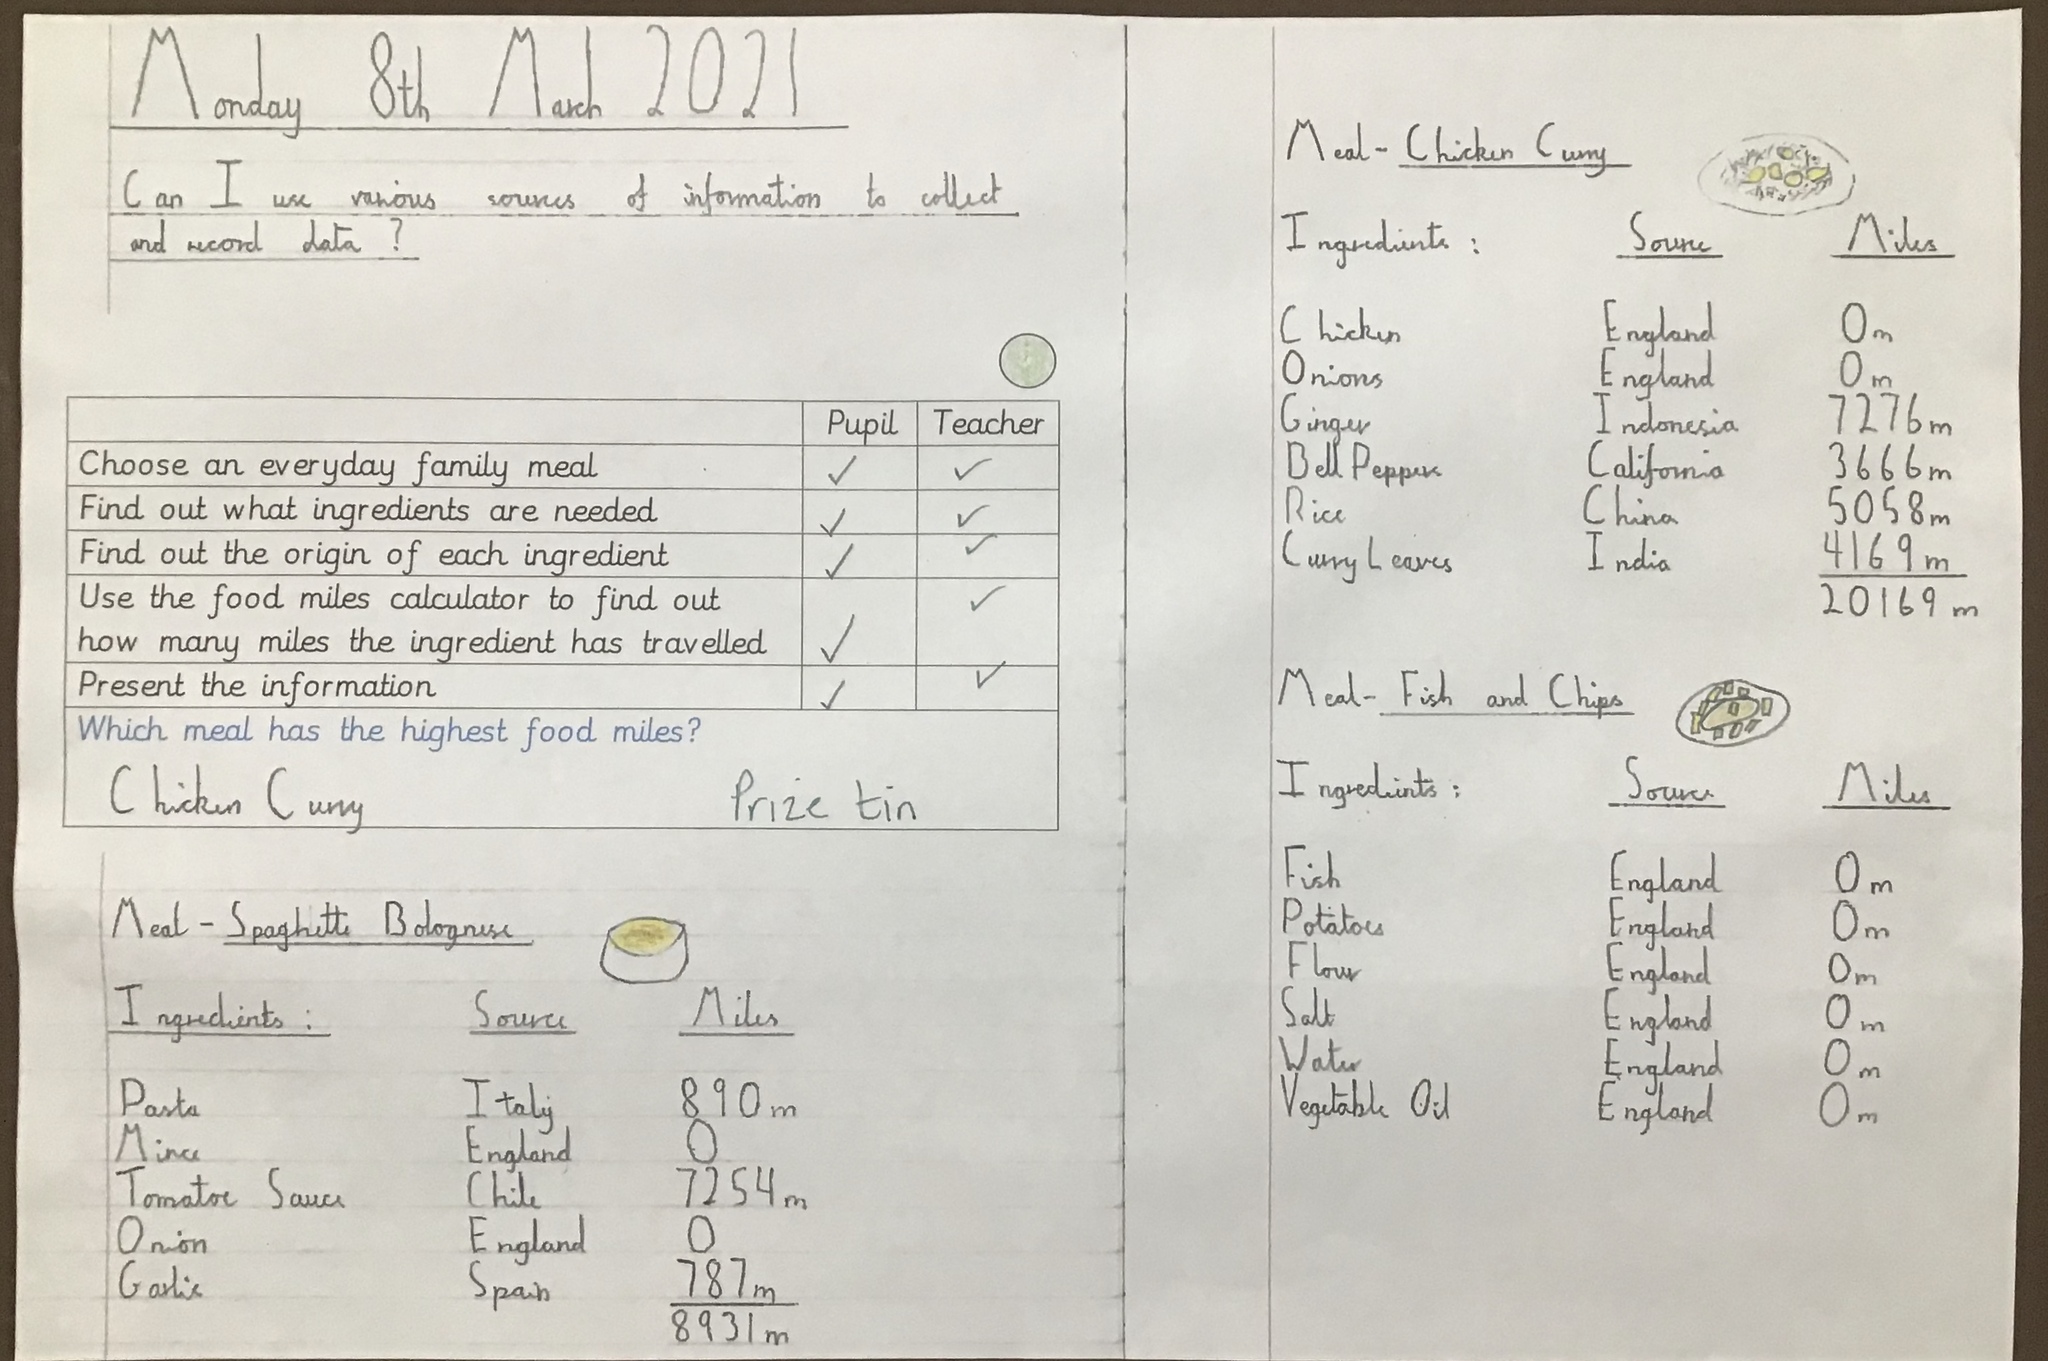 Monday 8th March 2021
Can I use various sources of information to collect
and record data?
Pupil Teacher
Choose an everyday family meal ✓ ✓
Find out what ingredients are needed ✓ ✓
Find out the origin of each ingredient ✓ ✓
Use the food miles calculator to find out ✓
how many miles the ingredient has travelled ✓
Present the information ✓ ✓
Which meal has the highest food miles?
Chicken Curry Prize tin
Meal - Spaghetti Bolognese
Ingredients: Source Miles
Pasta Italy 890m
Mince England 0
Tomatoe Sauce Chile 7254m
Onion England 0
Garlic Spain 787m
8931m
Meal - Chicken Curry
Ingredients: Source Miles
Chicken England 0m
Onions England 0m
Ginger Indonesia 7276m
Bell Pepper California 3666m
Rice China 5058m
Curry Leaves India 4169m
20169m
Meal - Fish and Chips
Ingredients: Source Miles
Fish England 0m
Potatoes England 0m
Flour England 0m
Salt England 0m
Water England 0m
Vegetable Oil England 0m